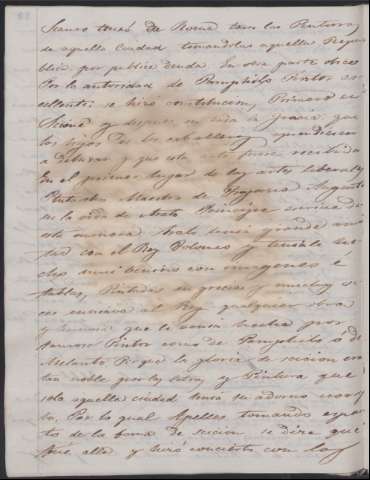 Scauro tomó de Roma todas las Pinturas,
de aquella Ciudad tomandolas aquella Repu
blica por publica deuda. En otra parte dice
Por la autoridad de Pamphilo Pintor ex
celente: se hizo constitucion, Primero en
Sicione y despues en toda la Grecia, que
los hijos de los caballeros aprendiesen
a Debuxar y que esta arte fuese recibida
En el primer lugar de las artes liberales
Plutarcho Maestro de Trajano Augusto
en la vida de Arato Principe escrive de
esta manera. Arato tenia grande amis
tad con el Rey Tolomeo y
con imagenes é
tablas, Pintadas en grecia y muchas ve
ces enviava al Rey qualquier obra
que la avia hecha por
Pintor como de Pamphilo ó de
Melanto Porque la gloria de sicion era
tan noble por las letras y Pintura que
sola aquella ciudad tenia su adorno
Por lo qual Apelles tomando
de la fama de sicion se dice que
fué alla y hizo concierto con los